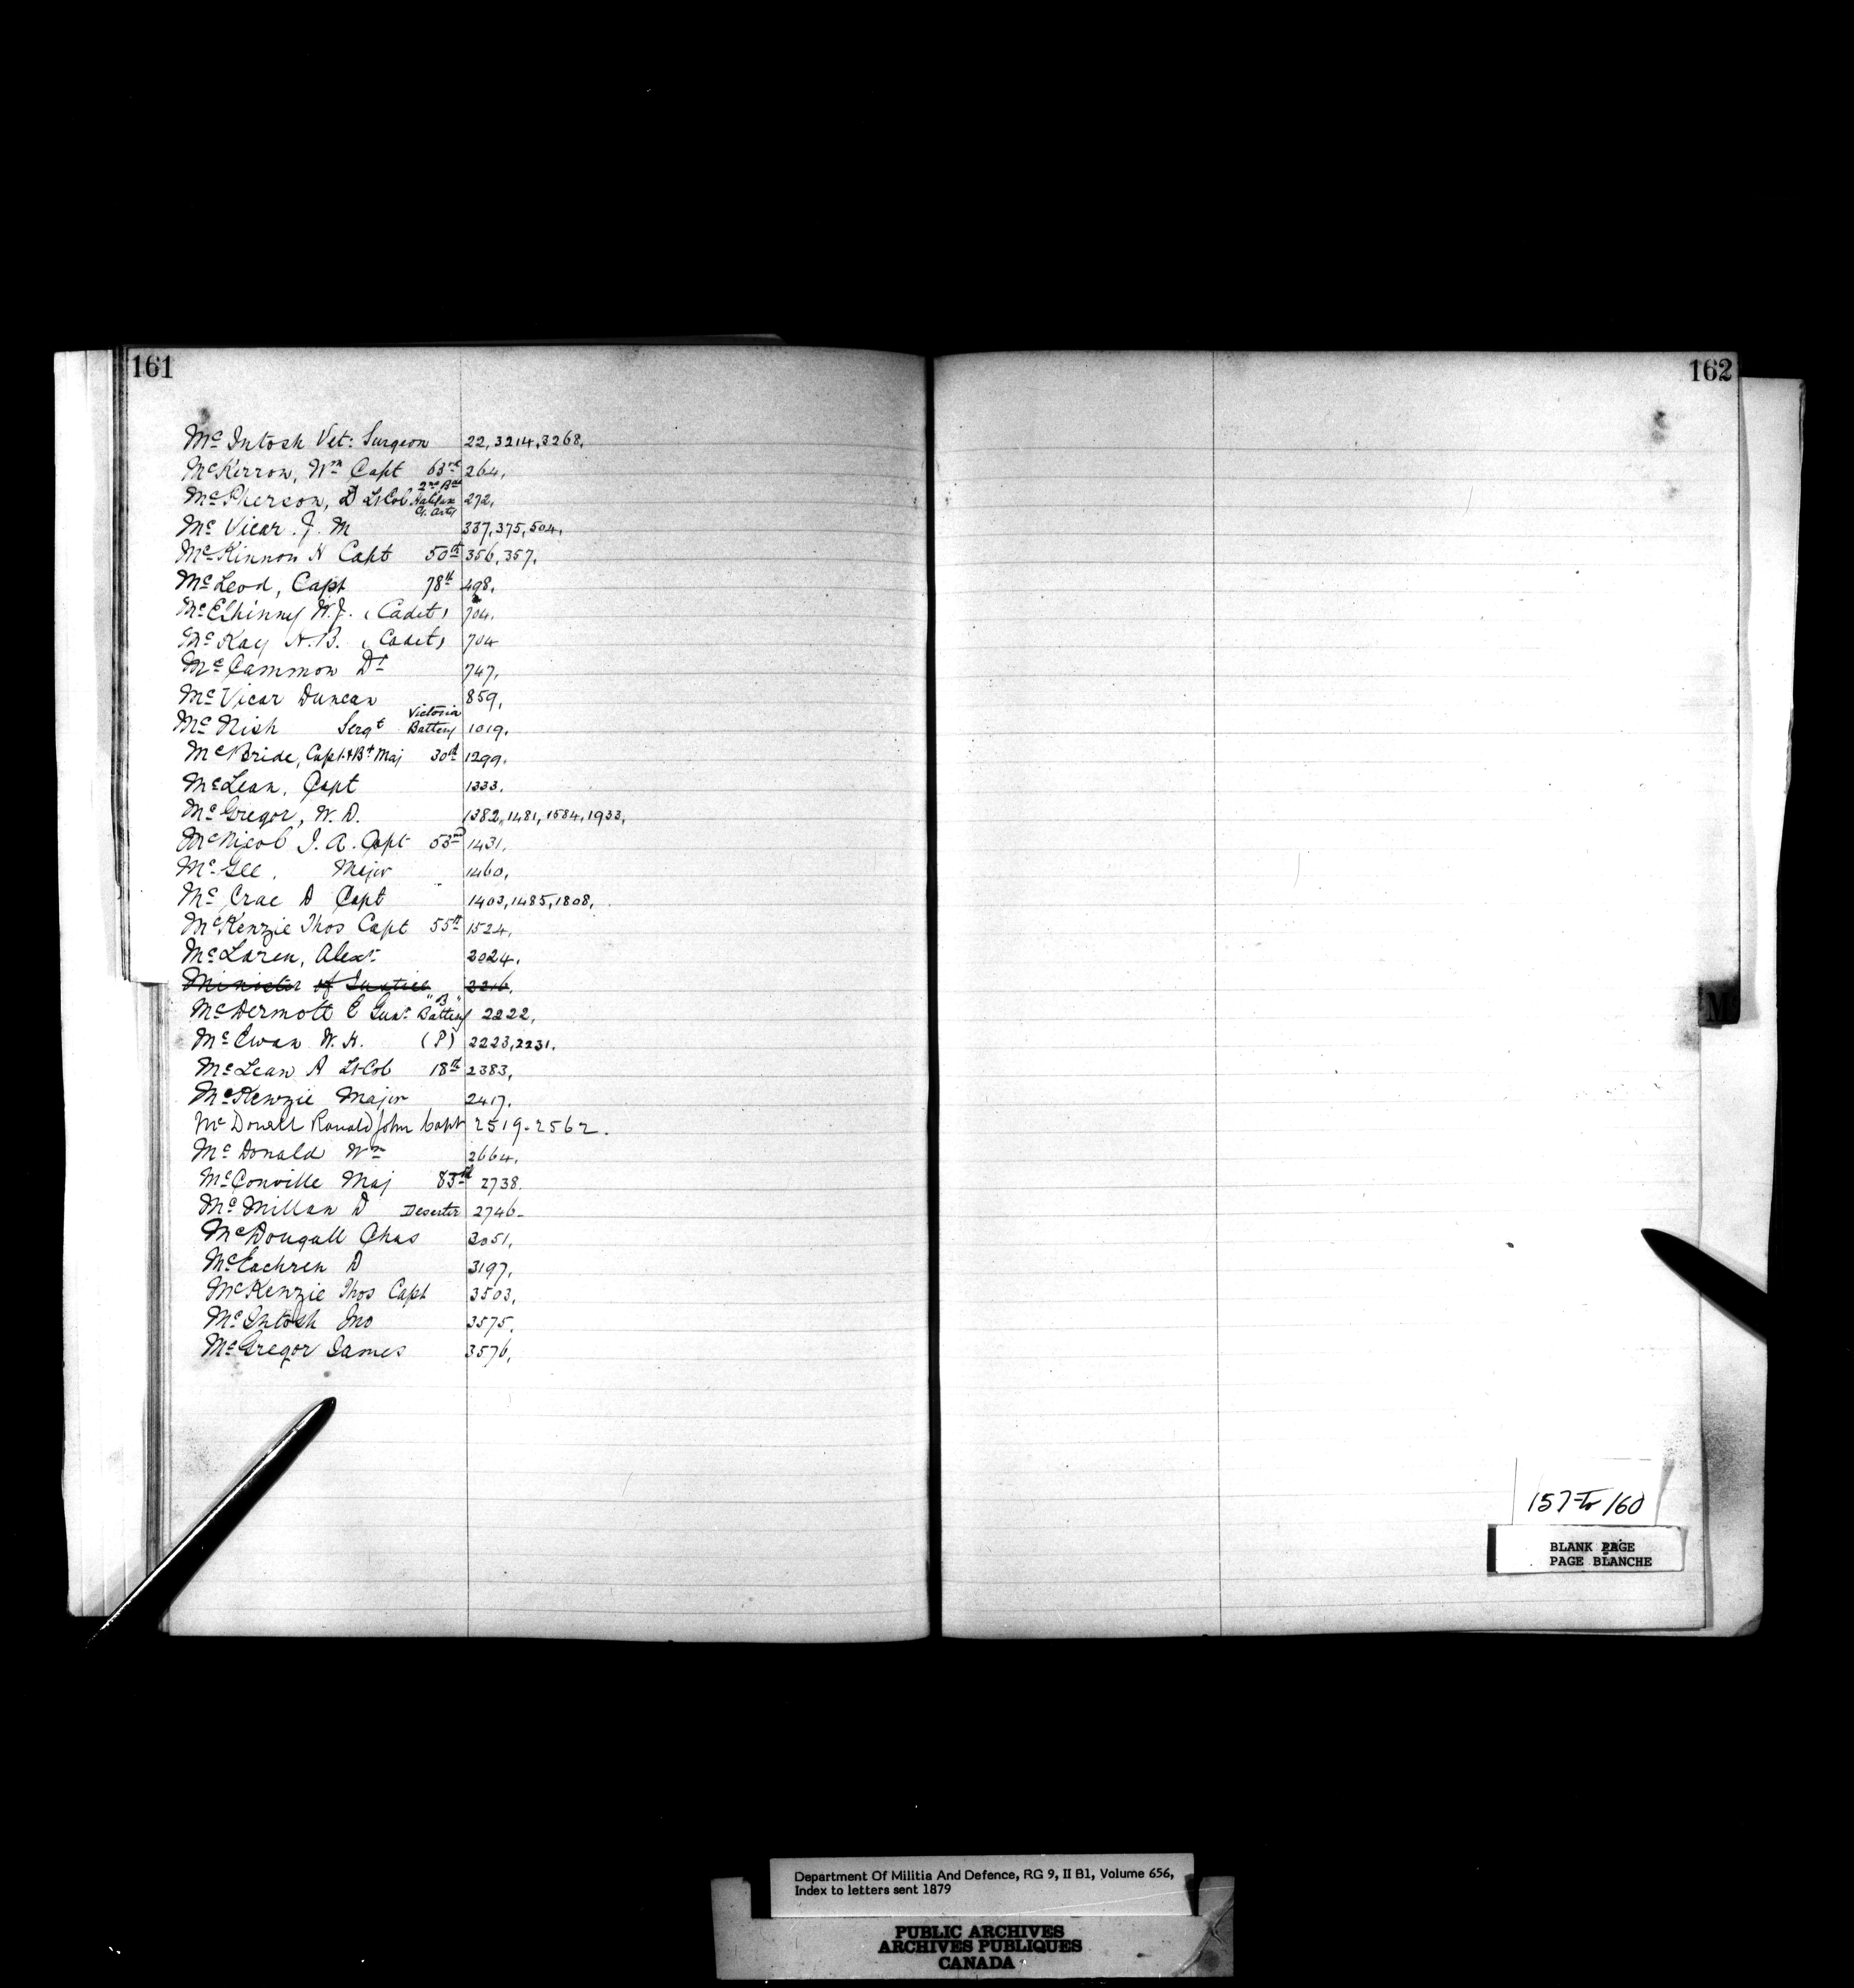 161
Mc Intosh Vet: Surgeon 22, 3214, 3268,
McKerron, Wm Capt 63rd 264,
McPherson, D Lt Col 2nd Bde Halifax G. Arty 272,
Mc Vicar J. M 337, 375, 504,
McKinnon H Capt 50th 356, 357,
McLeod, Capt 78th 498,
McElhinney W.J. (Cadet) 704,
McKay H.B. (Cadet) 704
McCammon Dr 747,
McVicar Duncan 859,
McNish Sergt Victoria Battery 1019,
McBride, Capt & Bt Maj 30th 1299,
McLean, Capt 1333,
McGregor, W. D. 1382, 1481, 1584, 1933,
McNicol J. A. Capt 53rd 1431,
McGee, Major 1460,
McCrae D Capt 1403, 1485, 1808,
McKenzie Thos Capt 55th 1524,
McLaren, Alexr 2024,
Minister of Justice 2216,
McDermott E Gunr "B" Battery 2222,
McEwan W. H. (P) 2223, 2231,
McLean A Lt Col 18th 2383,
McKenzie Major 2417,
McDonell Ranald John Capt 2519-2562.
McDonald Wm 2664,
McConville Maj 83rd 2738.
McMillan D Deserter 2746-
McDougall Chas 3051,
McEachren D 3197,
McKenzie Thos Capt 3503,
McIntosh Jno 3575,
McGregor James 3576,
162
M
157 to 160
BLANK PAGE
PAGE BLANCHE
Department Of Militia And Defence, RG 9, II B1, Volume 656,
Index to letters sent 1879
PUBLIC ARCHIVES
ARCHIVES PUBLIQUES
CANADA